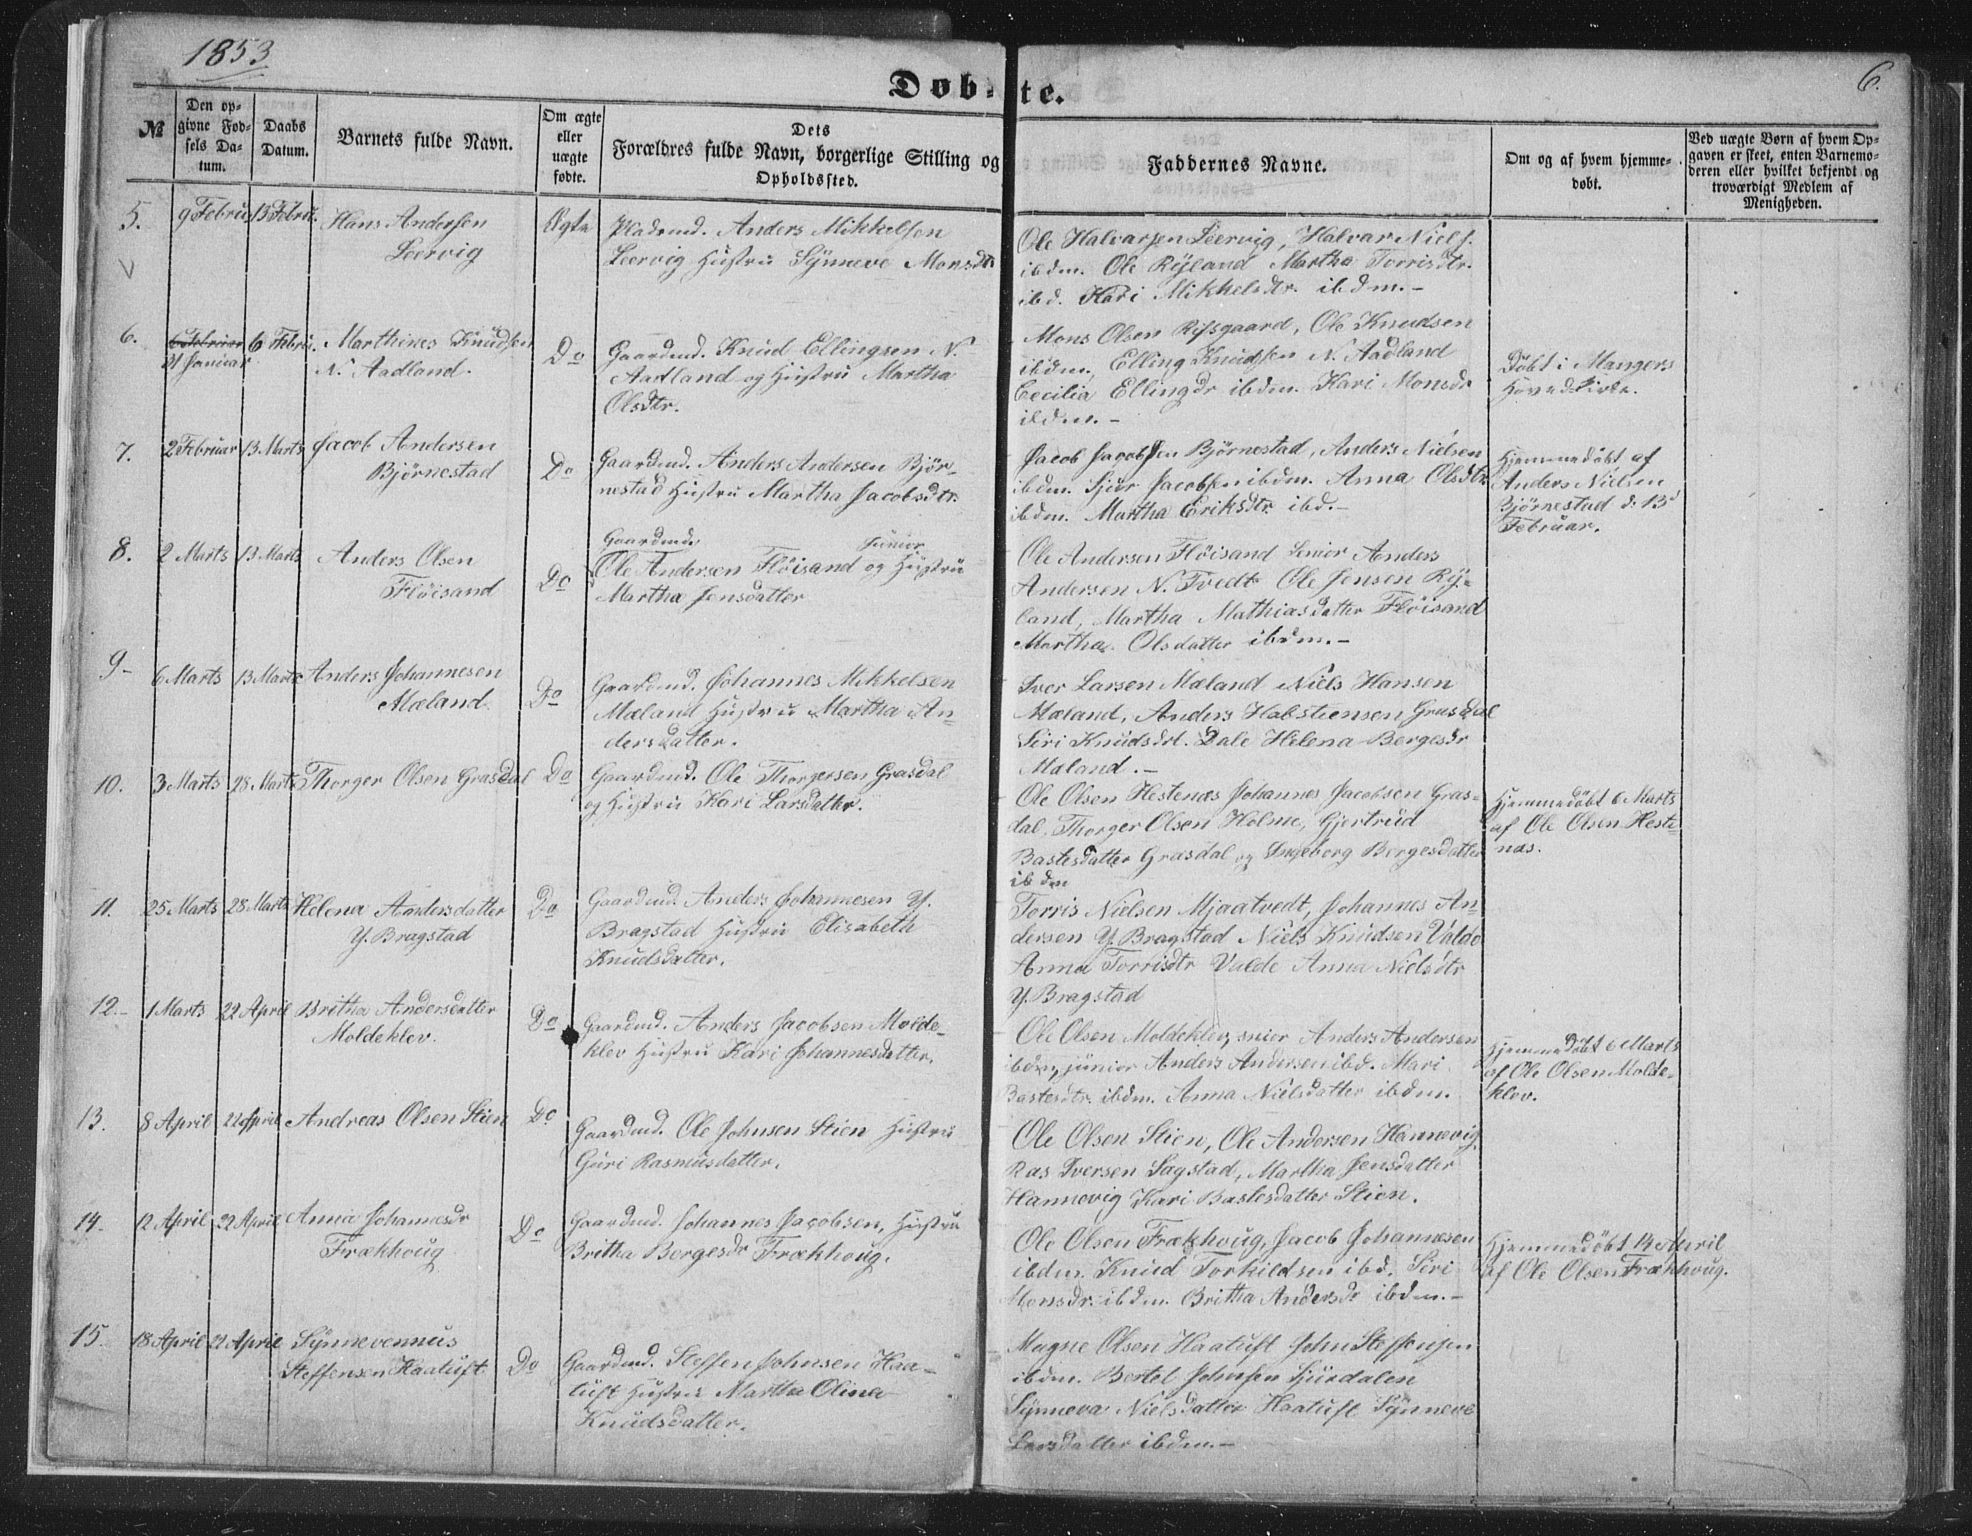 1853
6.
Døbte.
№
Den opgivne Fødsels Datum.
Daabs Datum.
Barnets fulde Navn.
Om ægte eller uægte fødte.
Dets Forældres fulde Navn, borgerlige Stilling og Opholdssted.
Faddernes Navne.
Om og af hvem hjemmedøbt.
Ved uægte Børn af hvem Opgaven er skeet, enten Barnemoderen eller hvilket bekjendt og troværdigt Medlem af Menigheden.
5.
9 Februar
13 Februr.
Hans Andersen
Leervig
Ægte
Pladsmd. Anders Mikkelsen
Leervig Hustru Synneve Monsdtr
Ole Halvarsen Leervig, Halvar Niels.
ibdm. Ole Ryland Martha Torrisdtr.
ibd. Kari Mikkelsdtr. ibdm.-
6.
6 Februar
31 Januar
6 Febru.
Marthines Knudsen
N. Aadland.
Do
Gaardmd. Knud Ellingsen N.
Aadland og Hustru Martha
Olsdtr.
Mons Olsen Risgaard, Ole Knudsen
ibdm. Elling Knudsen N. Aadland
Cecilia Ellingdr ibdm. Kari Monsdr
ibdm.-
Døbt i Mangers
Hovedkirke.
7.
2 Februar
13 Marts
Jacob Andersen
Bjørnestad
Do
Gaardmd. Anders Andersen Bjør-
nestad Hustru Martha Jacobsdtr.
Jacob Jacobsen Bjørnestad, Anders Nielsen
ibdm. Sjur Jacobsen ibdm. Anna Olsdtr
ibdm. Martha Eriksdtr. ibd.-
Hjemmedøbt af
Anders Nielsen
Bjørnestad d. 13
Februar.
8.
2 Marts
13 Marts
Anders Olsen
Fløisand
Do
Gaardmd. junior
Ole Andersen Fløisand og Hustru
Martha Jensdatter
Ole Andersen Fløisand senior Anders
Andersen N. Tvedt Ole Jensen Ry-
land, Martha Mathiasdatter Fløisand
Martha Olsdatter ibdm.-
9-
6 Marts
13 Marts
Anders Johannesen
Mæland.
Do
Gaardmd. Johannes Mikkelsen
Mæland Hustru Martha An-
dersdatter.
Iver Larsen Mæland Niels Hansen
Mæland, Anders Habsteensen Grasdal
Siri Knudsdtr. Dale Helena Bergesdr
Mæland.-
10.
3 Marts
28 Marts
Thorger Olsen Grasdal
Do
Gaardmd. Ole Thorgersen Grasdal
og Hustru Kari Larsdatter.
Ole Olsen Hestenæs Johannes Jacobsen Gras-
dal, Thorger Olsen Holme, Gjertrud
Bastesdatter Grasdal og Ingeborg Bergesdatter
ibdm
Hjemmedøbt 6 Marts
af Ole Olsen Heste-
næs.
11.
25 Marts
28 Marts
Helena Andersdatter
Y. Bragstad
Do
Gaardmd. Anders Johannesen Y.
Bragstad Hustru Elisabeth
Knudsdatter.
Torris Nielsen Mjaatvedt, Johannes An-
dersen Y. Bragstad Niels Knudsen Valde
Anna Torrisdtr Valde Anna Nielsdtr
Y. Bragstad
12.-
1 Marts
22 April
Britha Andersdatter
Moldeklev.
Do
Gaardmd. Anders Jacobsen Molde-
klev Hustru Kari Johannesdatter.
Ole Olsen Moldeklev, Anders Andersen
ibdm, junior Anders Andersen ibd. Mari
Bastesdtr. ibdm. Anna Nielsdatter ibdm.
Hjemmedøbt 6 Marts
af Ole Olsen Molde-
klev.
13.
8 April
22 April
Andreas Olsen Stien
Do
Gaardmd. Ole Johnsen Stien Hustru
Guri Rasmusdatter.
Ole Olsen Stien, Ole Andersen Hannevig
Ras Iversen Sagstad, Martha Jensdatter
Hannevig Kari Bastesdatter Stien.
14.
12 April
22 April
Anna Johannesdr
Frækhoug
Do
Gaardmd. Johannes Jacobsen, Hustru
Britha Bergesdr Frækhoug.
Ole Olsen Frækhoug, Jacob Johannesen
ibdm. Knud Torkildsen ibd. Siri
Monsdr. ibdm. Britha Andersdr ibdm.-
Hjemmedøbt 14 April
af Ole Olsen Frækhoug.
15.
18 April
22 April
Synnevennus
Steffensen Haatuft
Do
Gaardmd. Steffen Johnsen Haa-
tuft Hustru Martha Olina
Knudsdatter.
Magne Olsen Haatuft John Steffensen
ibdm. Bertel Johnsen Sjurdalen
Synneva Nielsdatter Haatuft Synneve
Larsdatter ibdm.-